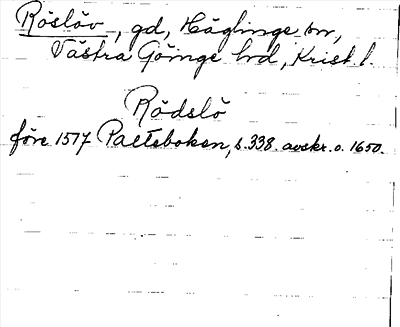 Röslöv, gd, Häglinge sn,
Västra Göinge hd, Krist. l.
Rödslö
före 1517 Palteboken, s. 338. avskr. o. 1650.